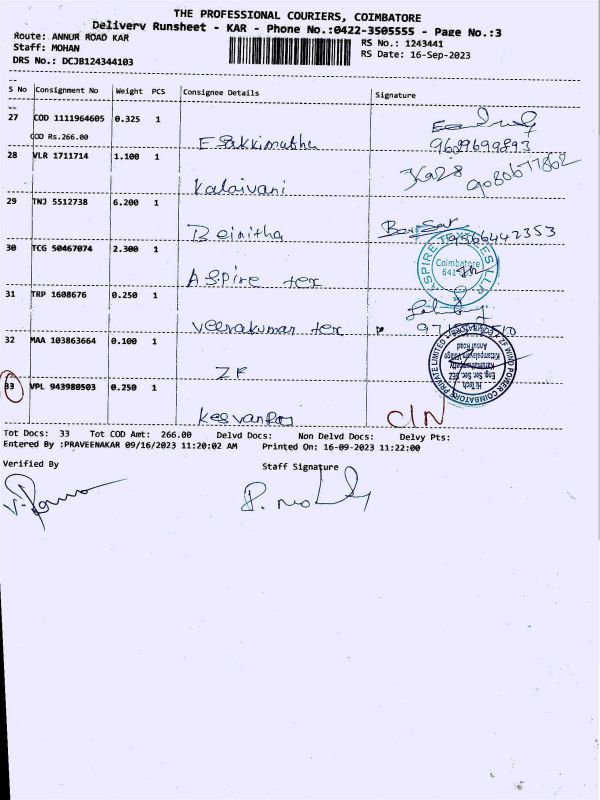 THE PROFESSIONAL COURIERS, COIMBATORE
Delivery Runsheet - KAR - Phone No.:0422-3505555 - Page No.:3
Route: ANNUR ROAD KAR
RS No.: 1243441
Staff: MOHAN
RS Date: 16-Sep-2023
DRS No.: DCJB124344103
S No Consignment No Weight PCS Consignee Details Signature
27 COD 1111964605 0.325 1
COD Rs.266.00 Esakkimuthu 9629699893
28 VLR 1711714 1.100 1
Kalaivani 9080677862
29 TNJ 5512738 6.200 1
Beinitha 9566442353
30 TCG 50467074 2.300 1
ASpire tex
Coimbatore
31 TRP 1608676 0.250 1
Veerakumar tex
32 MAA 103863664 0.100 1
ZF
33 VPL 943980503 0.250 1
Kesvanraj C/N
Tot Docs: 33 Tot COD Amt: 266.00 Delvd Docs: Non Delvd Docs: Delvy Pts:
Entered By :PRAVEENAKAR 09/16/2023 11:20:02 AM Printed On: 16-09-2023 11:22:00
Verified By Staff Signature